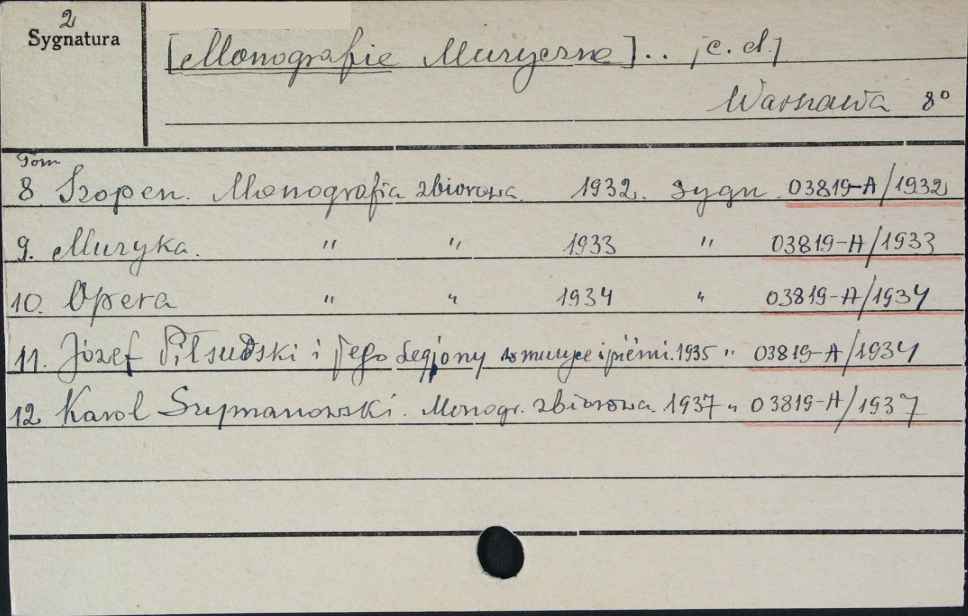 2
Sygnatura
[Monografie Muzyczne] .. [c. d.]
Warszawa 8°
Tom
8 Szopen. Monografia zbiorowa. 1932. sygn. 03819-A/1932
9. Muzyka. " " 1933 " 03819-A/1933
10. Opera " " 1934 " 03819-A/1934
11. Józef Piłsudski i Jego Legjony w muzyce i pieśni. 1935 " 03819-A/1934
12 Karol Szymanowski. Monogr. zbiorowa. 1937 " 03819-A/1937